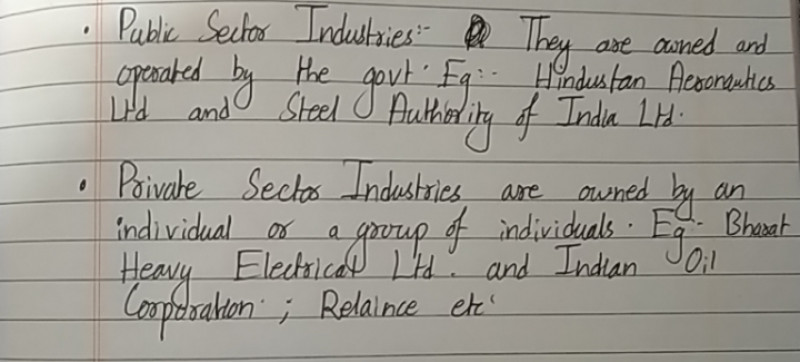 • Public Sector Industries:- They are owned and
operated by the govt. Eg:- Hindustan Aeronautics
Ltd and Steel Authority of India Ltd.
• Private Sector Industries are owned by an
individual or a group of individuals. Eg:- Bharat
Heavy Electrical Ltd. and Indian Oil
Corporation ; Relaince etc.